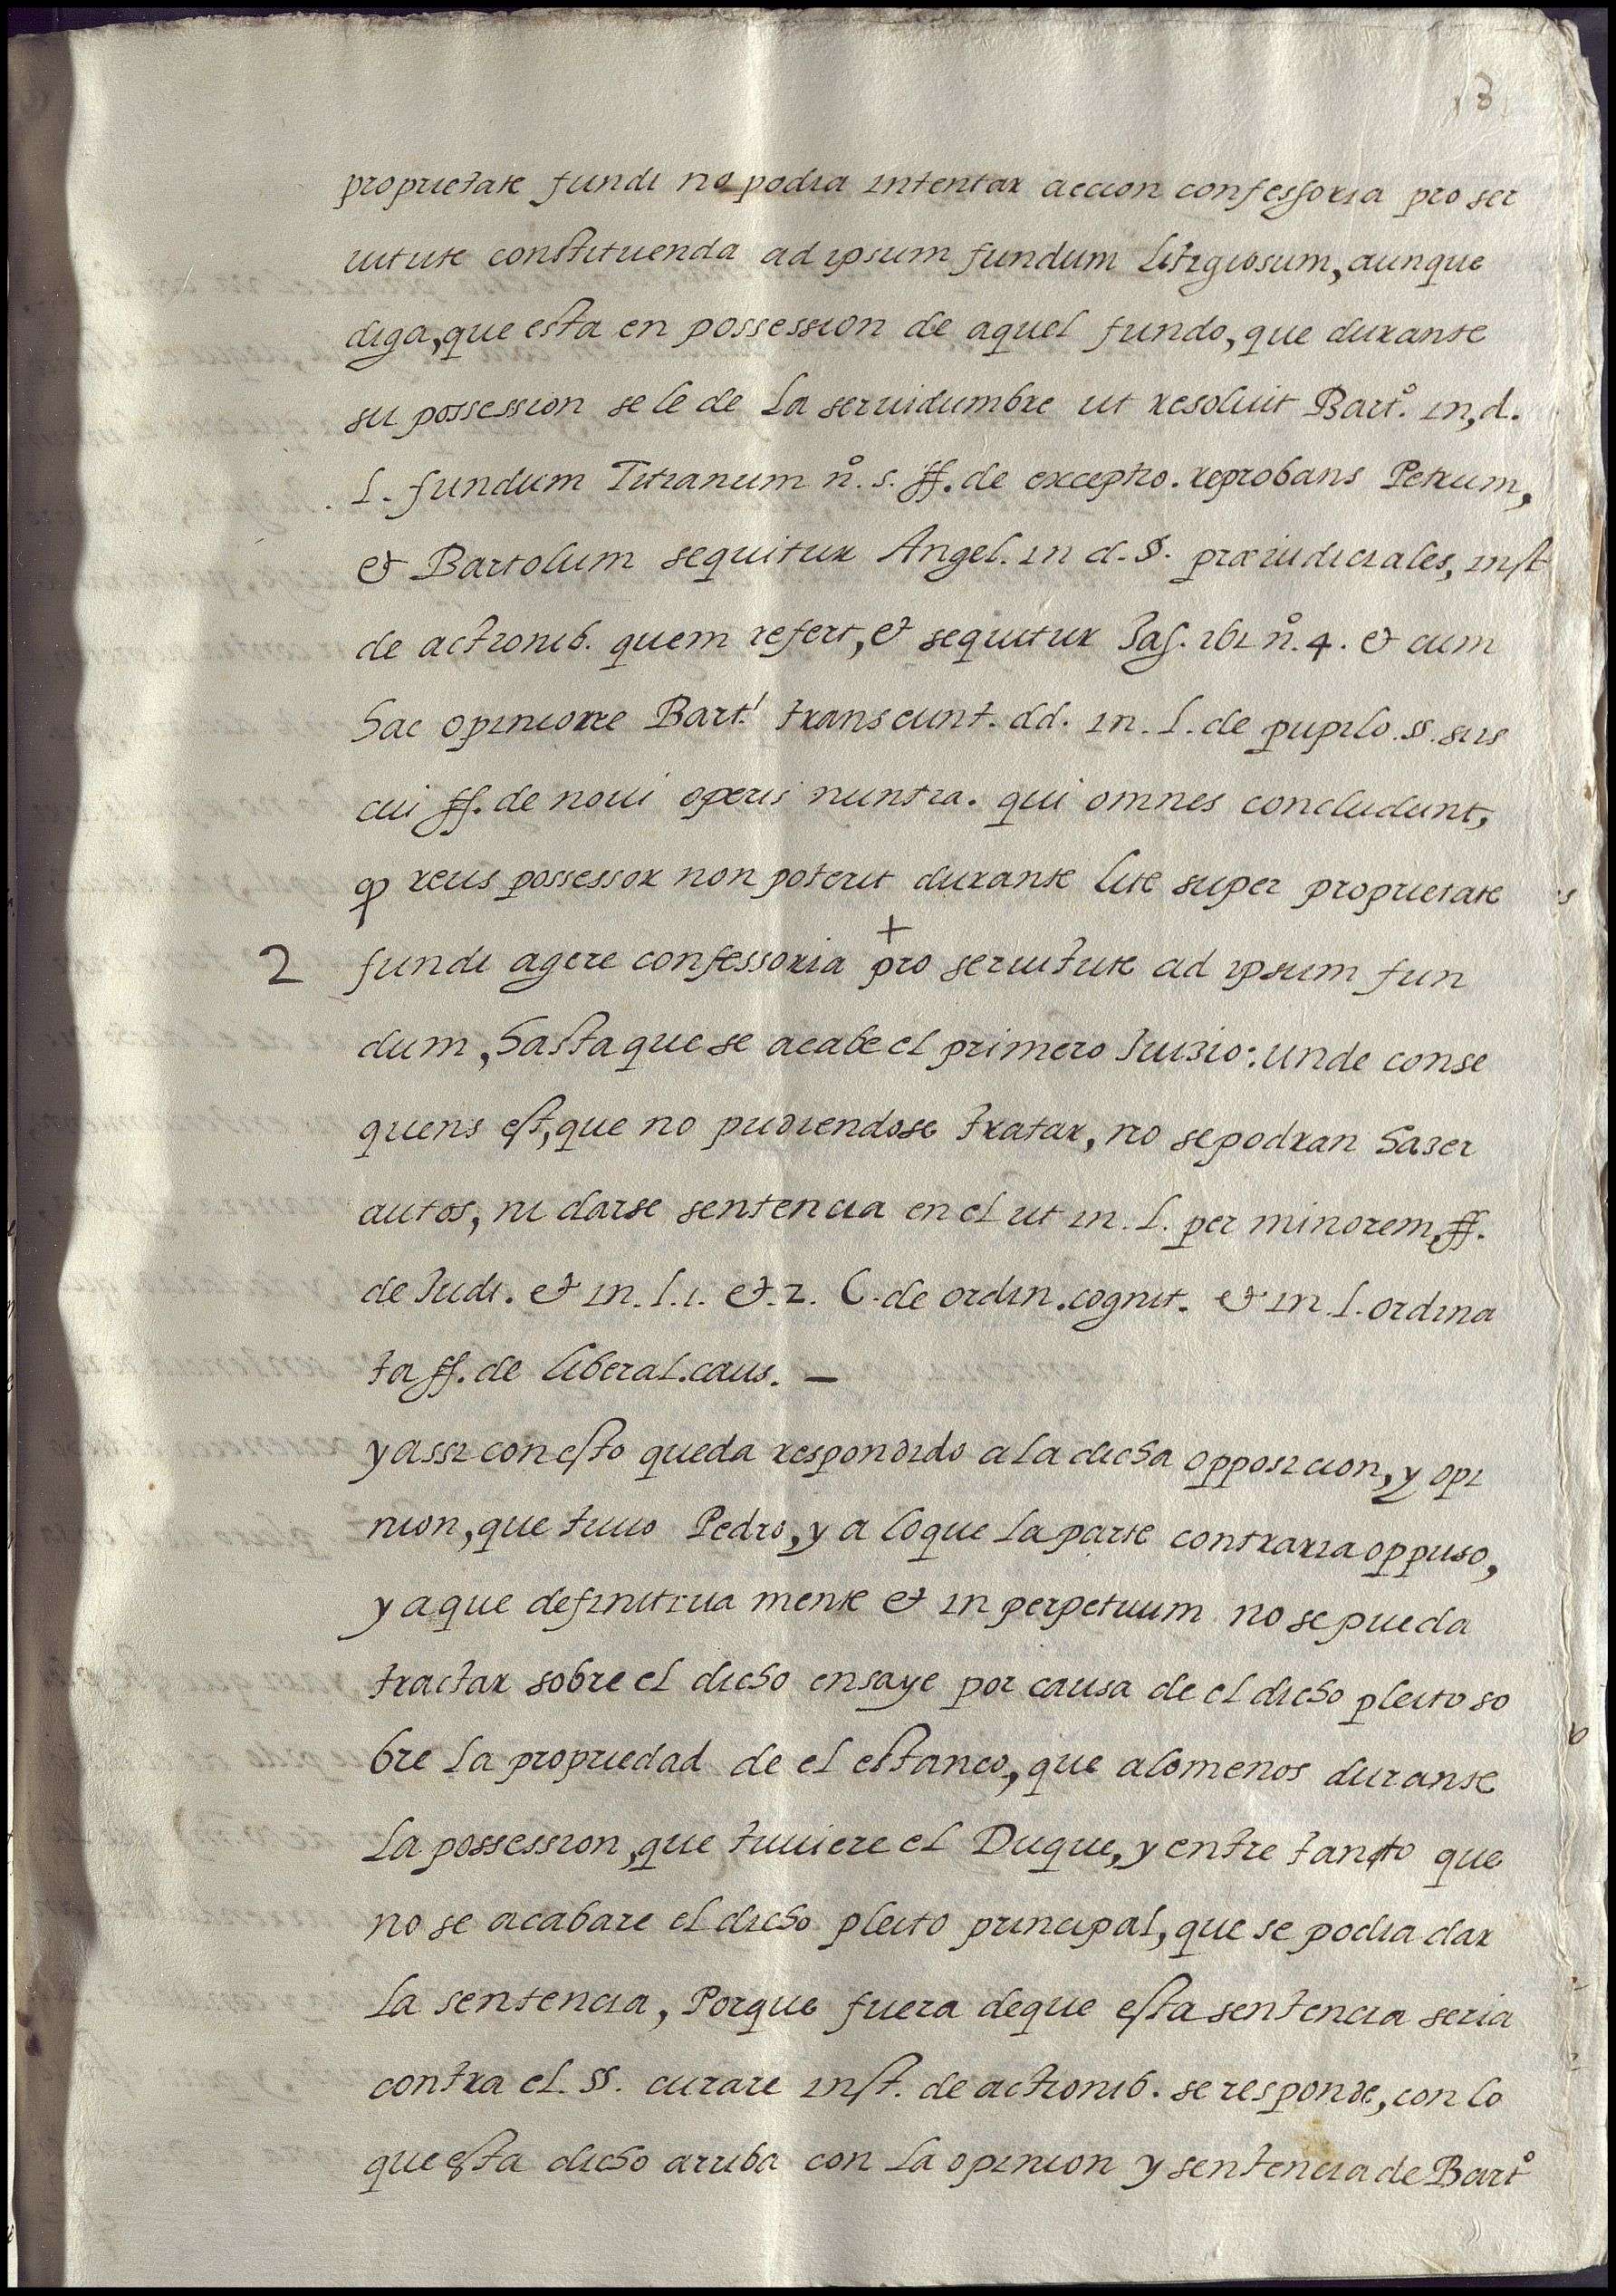 proprietate fundi no podia intentar accion confessoria pro ser
uitute constituenda ad ipsum fundum litigiosum, aunque
diga, que esta en possession de aquel fundo, que durante
su possession se le de la seruidumbre ut resoluit Bart.º in, d.
l. fundum Titianum nº. 5. ff. de exceptio. reprobans Petrum,
et Bartolum sequitur Angel. in d. §. præiudiciales, inst
de actionib. quem refert, et sequitur Jas. ibi nº. 4. et cum
hac opinione Bart.ⁱ transeunt. dd. in. l. de pupilo. §. si is
cui ff. de noui operis nuntia. qui omnes concludunt,
q reus possessor non poterit durante lite super proprietate
2 fundi agere confessoria + pro seruitute ad ipsum fun
dum, hasta que se acabe el primero Juizio: unde conse
quens est, que no pudiendose tratar, no se podran hazer
autos, ni darse sentencia en el ut in. l. per minorem, ff.
de Judi. et in. l. 1. et. 2. C. de ordin. cognit. et in. l. ordina
ta ff. de liberal. caus. —
y assi con esto queda respondido a la dicha opposicion, y opi
nion, que tuuo Pedro, y a lo que la parte contraria oppuso,
y a que definitiua mente et in perpetuum no se pueda
tractar sobre el dicho ensaye por causa de el dicho pleito so
bre la propriedad de el estanco, que a lo menos durante
la possession, que tuuiere el Duque, y entre tanto que
no se acabare el dicho pleito principal, que se podia dar
la sentencia, Porque fuera de que esta sentencia seria
contra el. §. curare inst. de actionib. se responde, con lo
que esta dicho arriba con la opinion y sentencia de Bartº